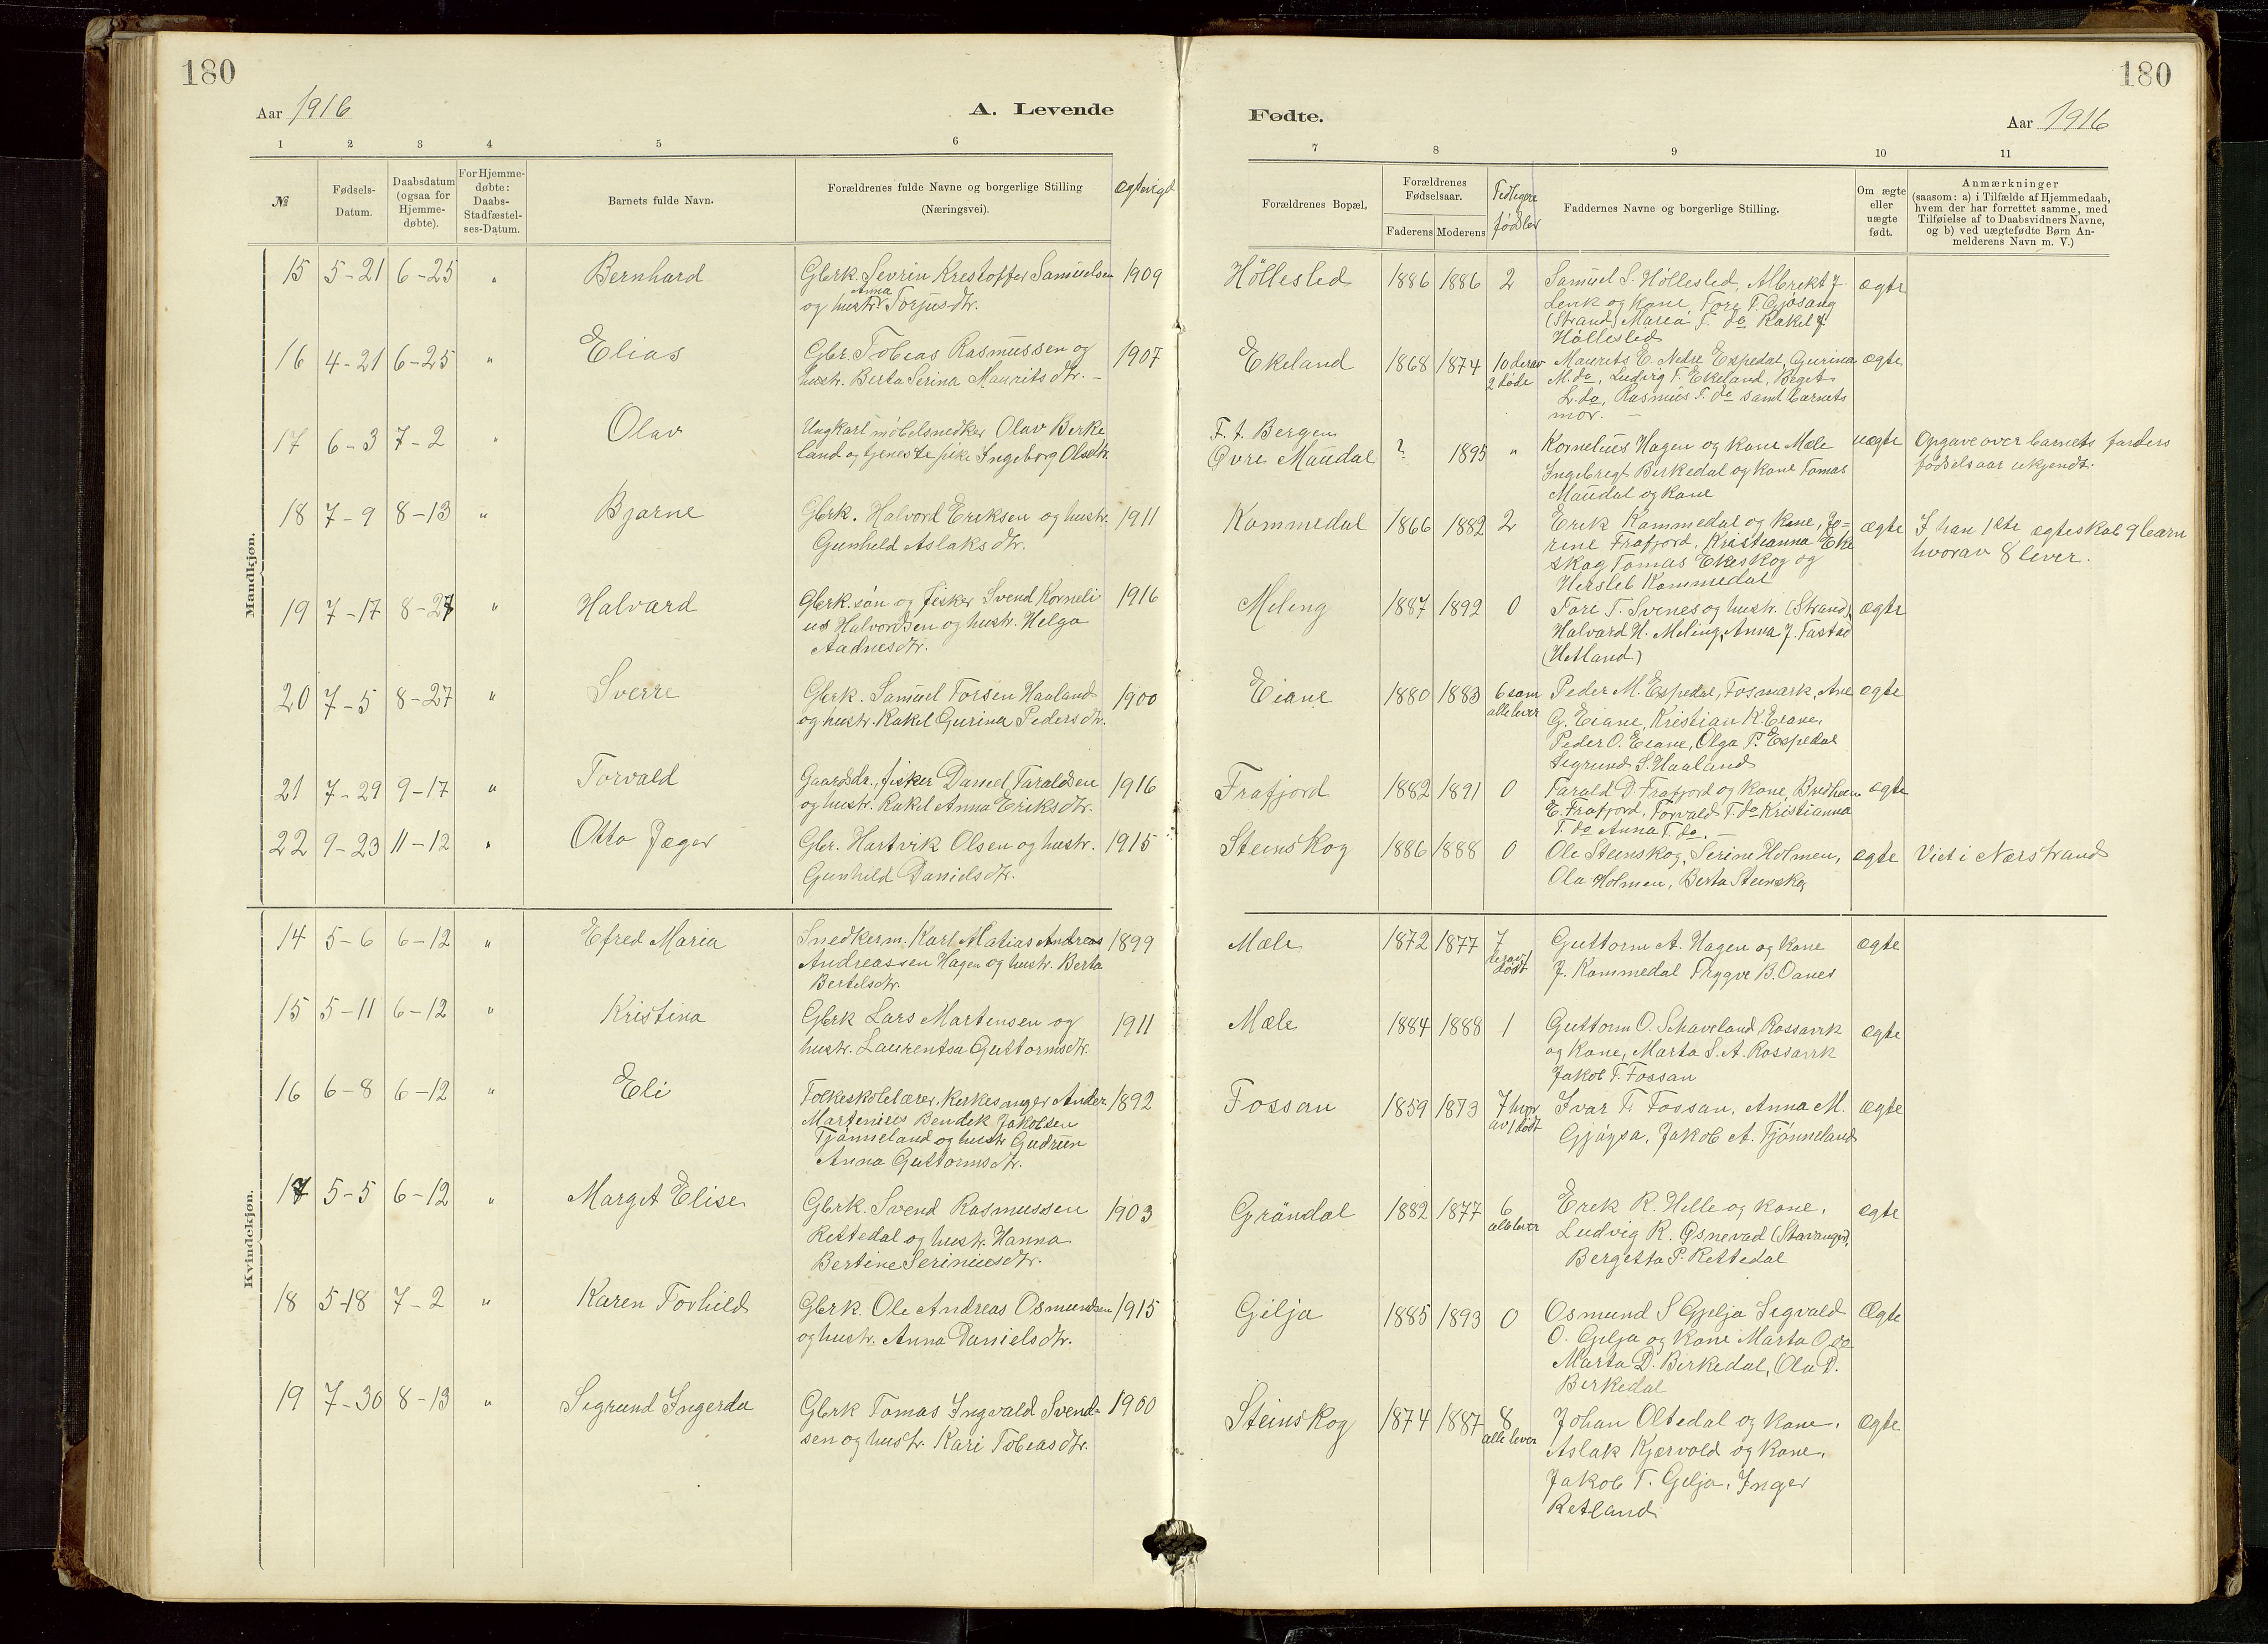 180
Aar 1916
A. Levende
1 2 3 4 5 6
№
Fødsels-Datum.
Daabsdatum (ogsaa for Hjemmedøbte).
For Hjemmedøbte: Daabs-Stadfæstelses-Datum.
Barnets fulde Navn.
Forældrenes fulde Navne og borgerlige Stilling (Næringsvei).
ægtevigd
Mandkjøn.
15 5-21 6-25 " Bernhard Gbrk. Sevrin Krestoffer Samuelsen 1909
og hustr. Anna Torjusdtr.
16 4-21 6-25 " Elias Gbr. Tobias Rasmussen og 1907
hustr. Berta Serina Mauritsdtr. –
17 6-3 7-2 " Olav Ungkarl møbelsnedker Olav Birke
land og tjenestepike Ingeborg Olsdtr.
18 7-9 8-13 " Bjarne Gbrk. Halvord Eriksen og hustr. 1911
Gunhild Aslaksdtr.
19 7-17 8-27 " Halvard Gbrk.søn og fisker Svend Korneli 1916
us Halvordsen og hustr. Helga
Aadnesdtr.
20 7-5 8-27 " Sverre Gbrk. Samuel Torsen Haaland 1900
og hustr. Rakel Gurina Pedersdtr.
21 7-29 9-17 " Torvald Gaardbr., fisker Daniel Taraldsen 1916
og hustr. Rakel Anna Eriksdtr.
22 9-23 11-12 " Otto Jæger Gbr. Hartvik Olsen og hustr. 1915
Gunhild Danielsdtr.
Kvindekjøn.
14 5-6 6-12 " Efred Maria Snedkerm. Karl Matias Andreas 1899
Andreassen Hagen og hustr. Berta
Bertelsdtr.
15 5-11 6-12 " Kristina Gbrk Lars Martensen og 1911
hustr. Laurentsa Guttormsdtr.
16 6-8 6-12 " Eli Folkeskolelærer, kirkesanger Ander 1892
Martenius Bendik Jakobsen
Tjønneland og hustr Gudrun
Anna Guttormsdtr.
17 5-5 6-12 " Marget Elise Gbrk. Svend Rasmussen 1903
Rettedal og hustr. Hanna
Bertine Seriniusdtr.
18 5-18 7-2 " Karen Torhild Gbrk. Ole Andreas Osmundsen 1915
og hustr. Anna Danielsdtr.
19 7-30 8-13 " Sigrund Ingerda Gbrk Tomas Ingvald Svend- 1900
sen og hustr. Kari Tobiasdtr.
180
Fødte.
Aar 1916
7 8 9 10 11
Forældrenes Bopæl.
Forældrenes Fødselsaar.
Faderens Moderens
Tidligere fødsler
Faddernes Navne og borgerlige Stilling.
Om ægte eller uægte født.
Anmærkninger
(saasom: a) i Tilfælde af Hjemmedaab,
hvem der har forrettet samme, med
Tilføielse af to Daabsvidners Navne,
og b) ved uægtefødte Børn Anmelderens Navn m. V.)
Höllesled 1886 1886 2 Samuel S. Höllesled, Albrekt J. ægte
Lervk og kone, Tore T. Gjøsang
(Strand) Maria T. do Rakel J
Höllesled
Ekeland 1868 1874 10 derav 2 døde Maurits E. Nedre Espedal, Gurina ægte
M. do, Ludvig T. Ekeland, Beget
L. do, Rasmus T. do samt barnets
mor. –
F. f. Bergen
Øvre Maudal ? 1895 " Kornelius Hagen og kone Mæle uægte Opgave over barnets farders
Ingebregt Birkedal og kone Tomas fødselsaar ukjendt.
Maudal og kone
Kommedal 1866 1882 2 Erik Kommedal og kone, Jo- ægte I han 1ste ægteskab 9 barn
rine Frafjord, Kristianna Eke hvorav 8 lever.
skog Tomas Ekeskog og
Hersleb Kommedal
Meling 1887 1892 0 Tore T. Svines og hustr. (Strand), ægte
Halvard H. Meling, Anna J. Tastad
(Hetland)
Eiane 1880 1883 6 som alle lever Peder M. Espedal, Fosmark, Ane ægte
G. Eiane, Kristian K. Eiane,
Peder O. Eiane, Olga P. Espedal
Sigrund S. Haaland
Frafjord 1882 1891 0 Tarald D. Frafjord og kone, Bredheem ægte
E. Frafjord, Torvald T. do Kristianna
T. do Anna T. do. –
Steinskog 1886 1888 0 Ole Steinskog, Serine Holmen, ægte Viet i Nærstrand
Ola Holmen, Berta Steinskog
Mæle 1872 1877 7 derav 1 dødt Guttorm A. Hagen og kone ægte
J. Kommedal Trygve B. Oanes
Mæle 1884 1888 1 Guttorm O. Schaveland Rossavik ægte
og kone, Marta S. A. Rossavik
Jakob T. Fossan
Fossan 1859 1873 7 hvor av 1 dødt Ivar T. Fossan, Anna M. ægte
Gjøysa, Jakob A. Tjønneland
Gröndal 1882 1877 6 alle lever Erek R. Helle og kone, ægte
Ludvig R. Osnevad (Stavanger),
Bergetta P. Rettedal
Gilja 1885 1893 0 Osmund S Gjelja Segvald Ægte
O. Gilja og kone Marta O. do
Marta D. Birkedal, Ola D.
Birkedal
Steinskog 1874 1887 8 alle lever Johan Oltedal og kone, ægte
Aslak Kjærvold og kone,
Jakob T. Gilja, Inger
Retland